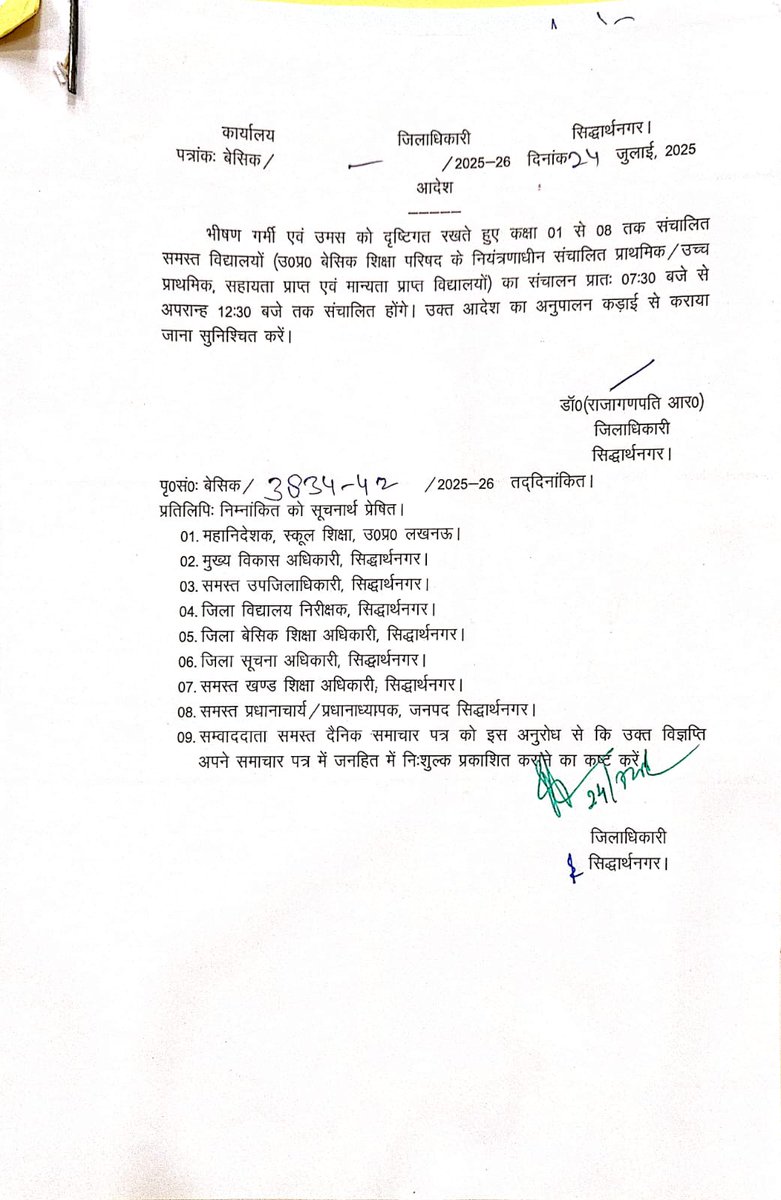 कार्यालय जिलाधिकारी सिद्धार्थनगर।
पत्रांकः बेसिक/ — /2025–26 दिनांक 24 जुलाई, 2025
आदेश
-----
भीषण गर्मी एवं उमस को दृष्टिगत रखते हुए कक्षा 01 से 08 तक संचालित
समस्त विद्यालयों (उ0प्र0 बेसिक शिक्षा परिषद के नियंत्रणाधीन संचालित प्राथमिक/उच्च
प्राथमिक, सहायता प्राप्त एवं मान्यता प्राप्त विद्यालयों) का संचालन प्रातः 07:30 बजे से
अपरान्ह 12:30 बजे तक संचालित होंगे। उक्त आदेश का अनुपालन कड़ाई से कराया
जाना सुनिश्चित करें।
डॉ0(राजागणपति आर0)
जिलाधिकारी
सिद्धार्थनगर।
पृ0सं0: बेसिक/ 3834-42 /2025–26 तद्दिनांकित।
प्रतिलिपिः निम्नांकित को सूचनार्थ प्रेषित।
01. महानिदेशक, स्कूल शिक्षा, उ0प्र0 लखनऊ।
02. मुख्य विकास अधिकारी, सिद्धार्थनगर।
03. समस्त उपजिलाधिकारी, सिद्धार्थनगर।
04. जिला विद्यालय निरीक्षक, सिद्धार्थनगर।
05. जिला बेसिक शिक्षा अधिकारी, सिद्धार्थनगर।
06. जिला सूचना अधिकारी, सिद्धार्थनगर।
07. समस्त खण्ड शिक्षा अधिकारी, सिद्धार्थनगर।
08. समस्त प्रधानाचार्य/प्रधानाध्यापक, जनपद सिद्धार्थनगर।
09. सम्वाददाता समस्त दैनिक समाचार पत्र को इस अनुरोध से कि उक्त विज्ञप्ति
अपने समाचार पत्र में जनहित में निःशुल्क प्रकाशित कराने का कष्ट करें।
जिलाधिकारी
सिद्धार्थनगर।